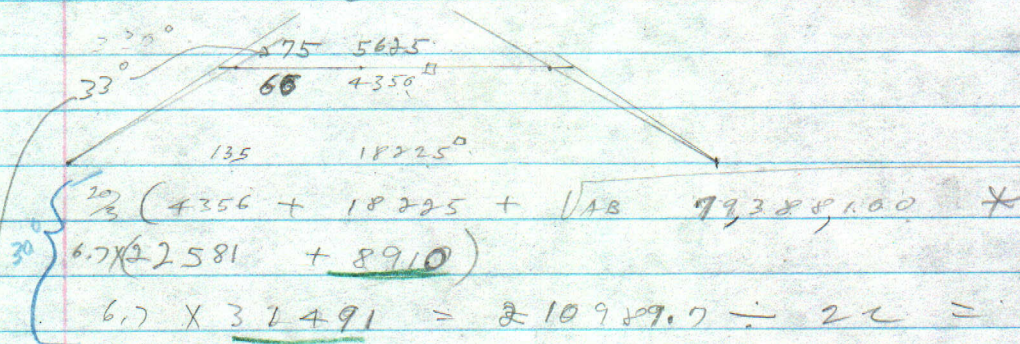 75 5625
33° 66 4356□
135 18225□
20/3 ( 4356 + 18225 + √AB 79,388,100 *
30° 6.7×(22581 + 8910)
6.7 × 31491 = 210989.7 ÷ 22 =